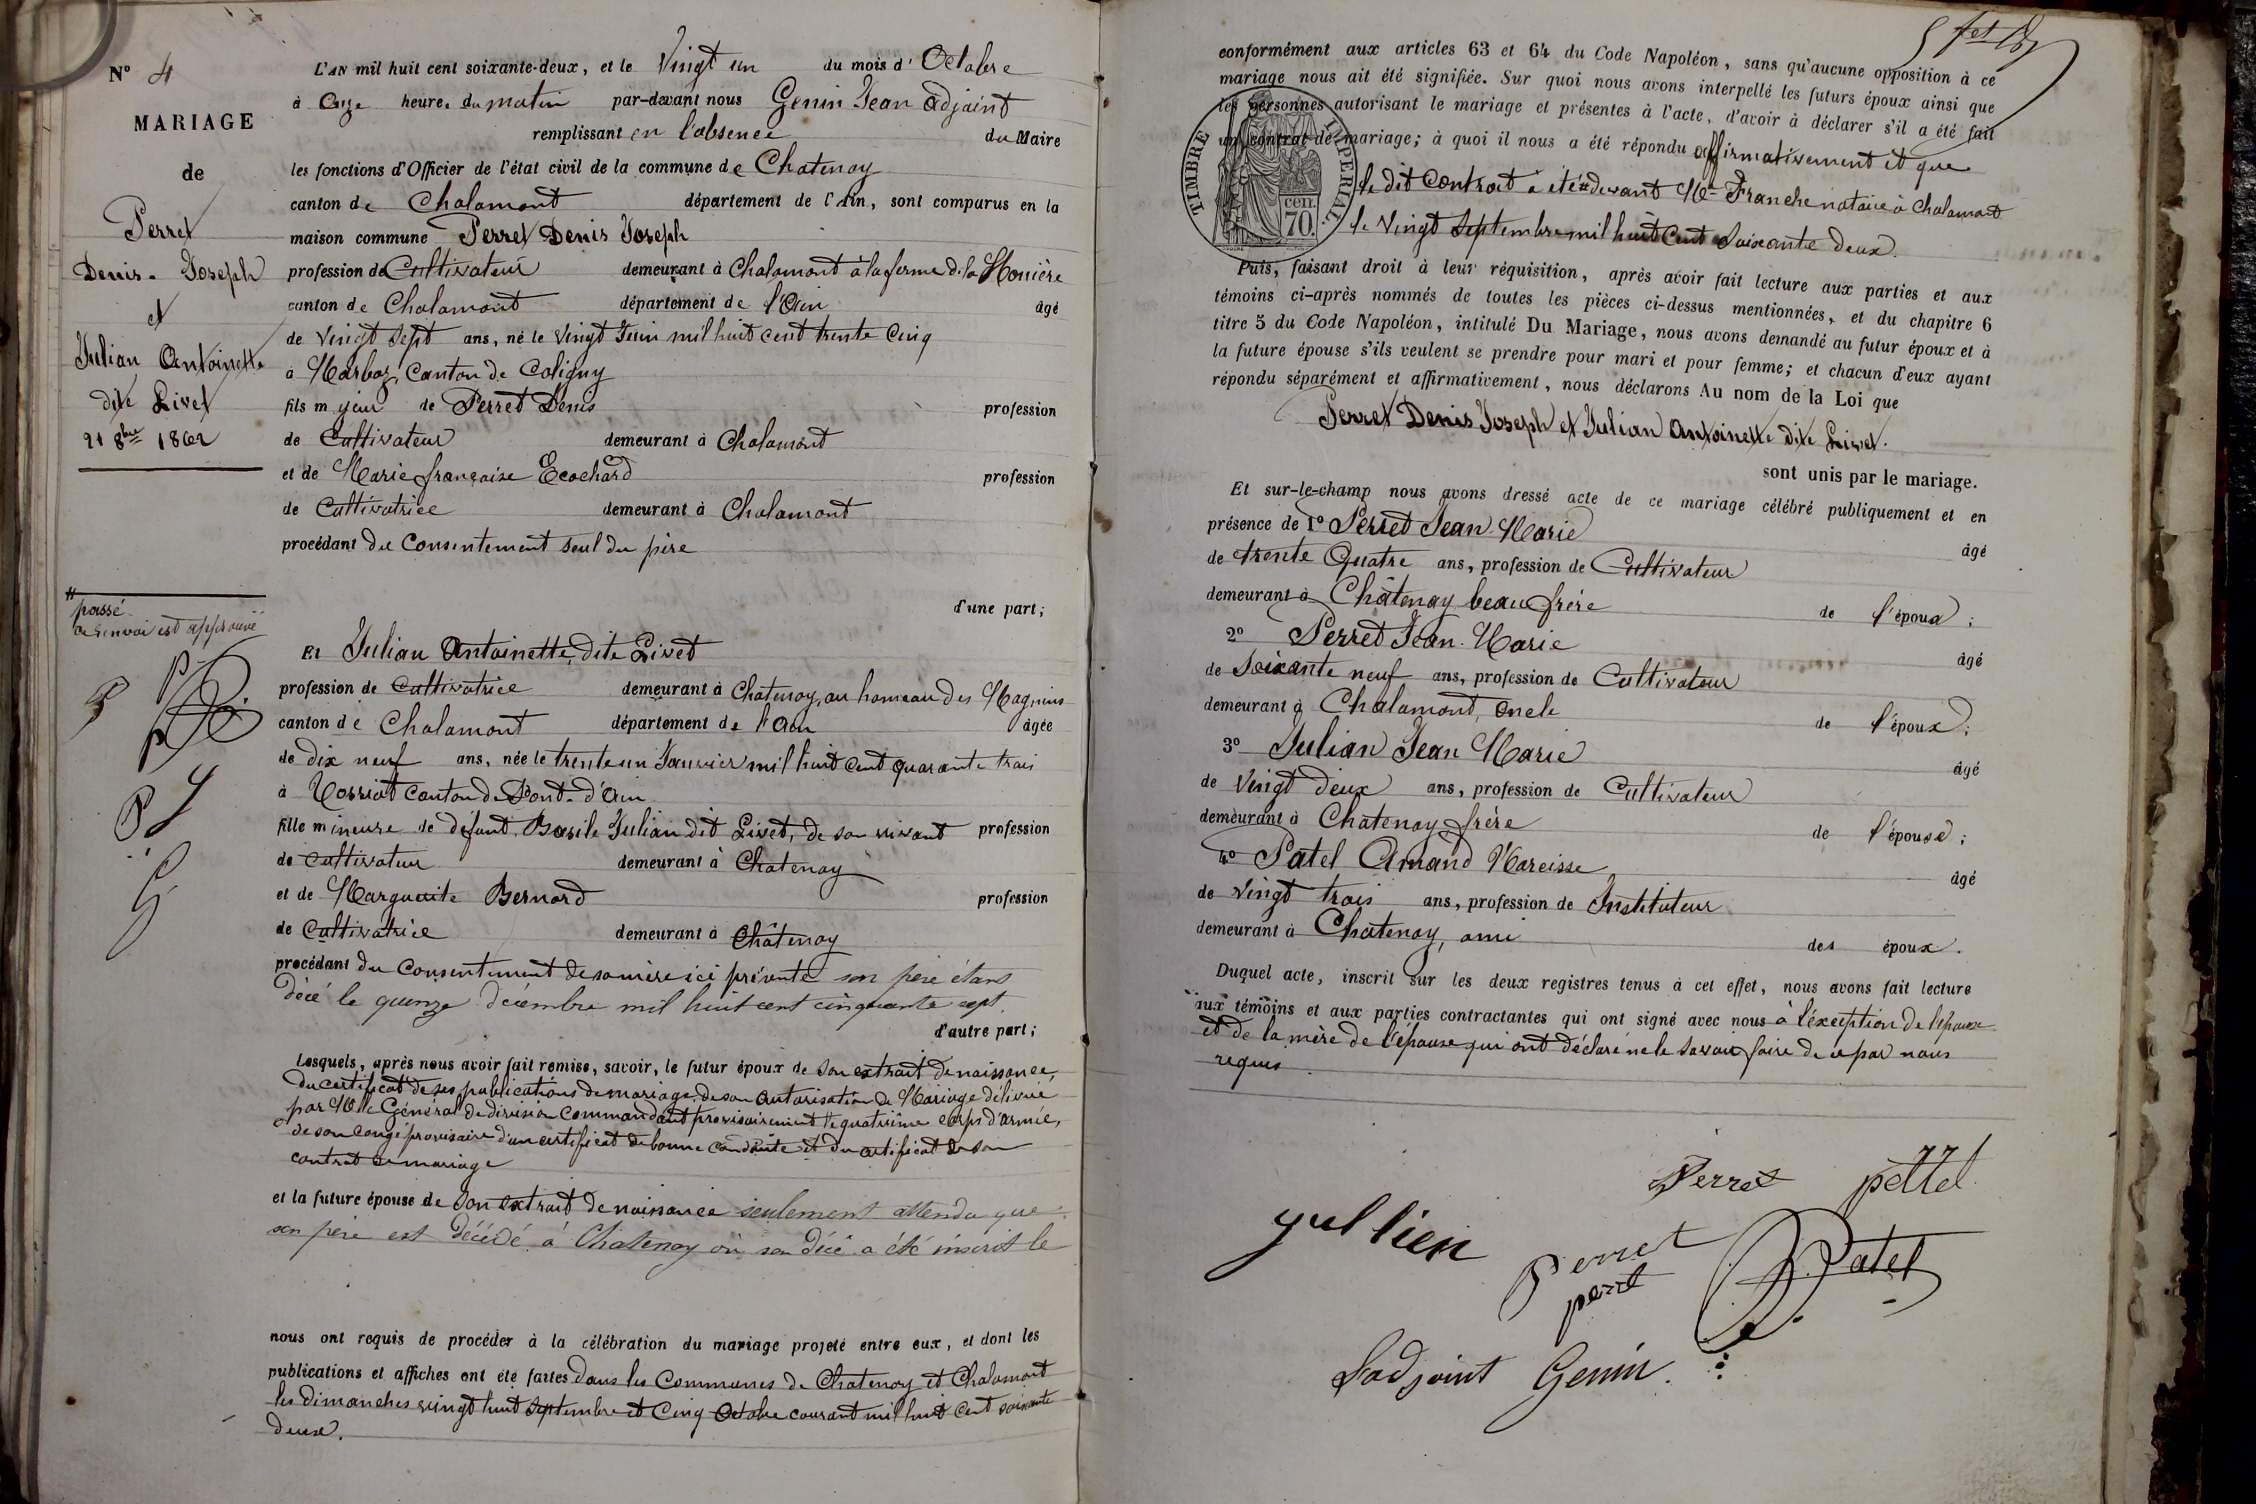 N° 4
MARIAGE
de
Perret
Denis-Joseph
et
Julian Antoinette
dite Livet
21 8bre 1862
L'AN mil huit cent soixante-deux, et le Vingt un du mois d'Octobre
à Onze heures du matin par-devant nous Genin Jean Adjoint
remplissant en l'absence du Maire
les fonctions d'Officier de l'état civil de la commune de Chatenay
canton de Chalamont département de l'Ain, sont comparus en la
maison commune Perret Denis Joseph
profession de Cultivateur demeurant à Chalamont à la ferme de la
canton de Chalamont département de l'Ain âgé
de Vingt Sept ans, né le Vingt Juin mil huit cent trente Cinq
à Marboz, Canton de Coligny
fils majeur de Perret Denis profession
de Cultivateur demeurant à Chalamont
et de Marie françoise Ecochard profession
de Cultivatrice demeurant à Chalamont
procédant du Consentement seul du père
d'une part;
# passé
ce renvoi est approuvé
Et Julian Antoinette, dite Livet
profession de Cultivatrice demeurant à Chatenay, au hameau des Magnins
canton de Chalamont département de l'Ain âgée
de dix neuf ans, née le trente un Janvier mil huit cent quarante trois
à Varriat Canton de Pont-d'Ain
fille mineure de défunt Basile Julian dit Livet, de son vivant profession
de Cultivateur demeurant à Chatenay
et de Marguerite Bernard profession
de Cultivatrice demeurant à Châtenay
procédant du Consentement de sa mère ici présente son père étant
décé le quinze décembre mil huit cent cinquante sept.
d'autre part;
Lesquels, après nous avoir fait remise, savoir, le futur époux de Son extrait de naissance,
du certificat de ses publications de mariage, de son autorisation de Mariage délivrée
par Mr le Général de division Commandant provisoirement le quatrième corps d'armée,
de son congé provisoire d'un certificat de bonne conduite et du certificat de son
contrat de mariage
et la future épouse de Son extrait de naissance seulement attendu que
son père est décédé à Chatenay où son décé a été inscrit le
nous ont requis de procéder à la célébration du mariage projeté entre eux, et dont les
publications et affiches ont été faites Dans les Communes de Chatenay et Chalamont
les dimanches vingt huit Septembre et Cinq Octobre courant mil huit Cent soixante
deux.
conformément aux articles 63 et 64 du Code Napoléon, sans qu'aucune opposition à ce
mariage nous ait été signifiée. Sur quoi nous avons interpellé les futurs époux ainsi que
les personnes autorisant le mariage et présentes à l'acte, d'avoir à déclarer s'il a été fait
un contrat de mariage; à quoi il nous a été répondu affirmativement et que
le dit Contrat a été # devant Me Franche notaire à Chalamont
le Vingt Septembre mil huit Cent Soixante deux.
TIMBRE IMPERIAL
cen.
70.
Puis, faisant droit à leur réquisition, après avoir fait lecture aux parties et aux
témoins ci-après nommés de toutes les pièces ci-dessus mentionnées, et du chapitre 6
titre 5 du Code Napoléon, intitulé Du Mariage, nous avons demandé au futur époux et à
la future épouse s'ils veulent se prendre pour mari et pour femme; et chacun d'eux ayant
répondu séparément et affirmativement, nous déclarons Au nom de la Loi que
Perret Denis Joseph et Julian Antoinette dite Livet.
sont unis par le mariage.
Et sur-le-champ nous avons dressé acte de ce mariage célébré publiquement et en
présence de 1° Perret Jean-Marie âgé
de trente Quatre ans, profession de Cultivateur
demeurant à Châtenay beau frère de l'époux;
2° Perret Jean-Marie âgé
de Soixante neuf ans, profession de Cultivateur
demeurant à Chalamont, oncle de l'époux;
3° Julian Jean Marie âgé
de Vingt deux ans, profession de Cultivateur
demeurant à Chatenay frère de l'épouse;
4° Patel Amand Narcisse âgé
de Vingt trois ans, profession de Instituteur
demeurant à Chatenay, ami des époux.
Duquel acte, inscrit sur les deux registres tenus à cet effet, nous avons fait lecture
aux témoins et aux parties contractantes qui ont signé avec nous à l'éxception de l'épouse
et de la mère de l'épouse qui ont déclaré ne le savoir faire de ce par nous
requis.
Perret pettel
jullien Perret
peret Patel
L'adjoint Genin.